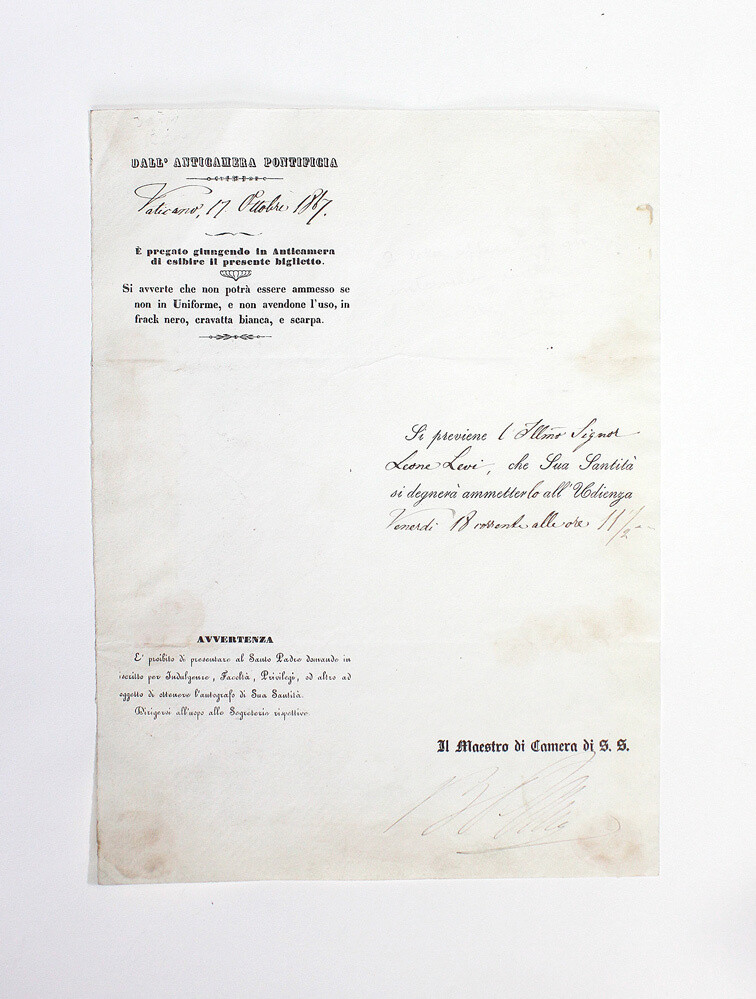 DALL' ANTICAMERA PONTIFICIA
Vaticano, 17. Ottobre 1867.
È pregato giungendo in Anticamera
di esibire il presente biglietto.
Si avverte che non potrà essere ammesso se
non in Uniforme, e non avendone l'uso, in
frack nero, cravatta bianca, e scarpa.
Si previene l Illmo Signor
Leone Levi, che Sua Santità
si degnerà ammetterlo all'Udienza
Venerdi 18 corrente alle ore 11 1/2
AVVERTENZA
E' proibito di presentare al Santo Padre domande in
iscritto per Indulgenze, Facoltà, Privilegi, od altro ad
oggetto di ottenere l'autografo di Sua Santità.
Dirigersi all'uopo alle Segreterie rispettive.
Il Maestro di Camera di S. S.